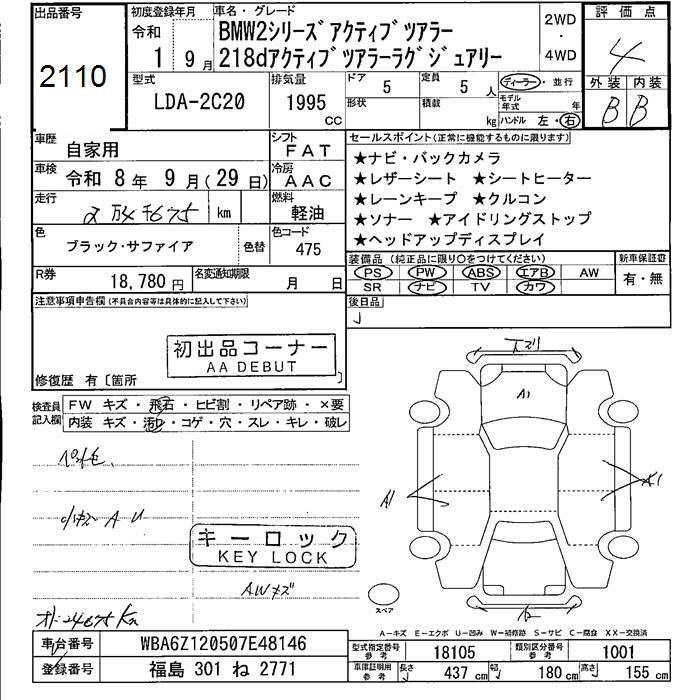 出品番号
2110
初度登録年月
令和
1 9月
車名・グレード
BMW2シリーズアクティブツアラー
218dアクティブツアラーラグジュアリー
2WD
・
4WD
評価点
4
外装 内装
B B
型式
LDA-2C20
排気量
1995
cc
ドア 5
形状
定員 5 人
積載 kg
ディーラー・並行
モデル年式 年
ハンドル 左・右
車歴
自家用
シフト
FAT
車検
令和 8年 9月(29日)
冷房
AAC
走行
2万4千675 km
燃料
軽油
色
ブラック・サファイア
色替
色コード
475
R券
18,780円
名変通知期限
月 日
セールスポイント(正常に機能するものに限ります)
★ナビ・バックカメラ
★レザーシート ★シートヒーター
★レーンキープ ★クルコン
★ソナー ★アイドリングストップ
★ヘッドアップディスプレイ
装備品(純正品に限り〇をつけてください)
PS PW ABS エアB AW
SR ナビ TV カワ
新車保証書
有・無
後日品
注意事項申告欄(不具合内容等は具体的に記入して下さい)
初出品コーナー
AA DEBUT
修復歴 有〔箇所 〕
検査員記入欄
FW キズ・飛石・ヒビ割・リペア跡・×要
内装 キズ・汚れ・コゲ・穴・スレ・キレ・破レ
小キズ A U
キーロック
KEY LOCK
AWキズ
24675Km
A1
A1
スペア
A-キズ E-エクボ U-凹み W-補修跡 S-サビ C-腐食 XX-交換済
車台番号
WBA6Z120507E48146
登録番号
福島 301 ね 2771
型式指定番号
参考
18105
類別区分番号
参考
1001
車庫証明用
参考
長さ 437 cm 幅 180 cm 高さ 155 cm